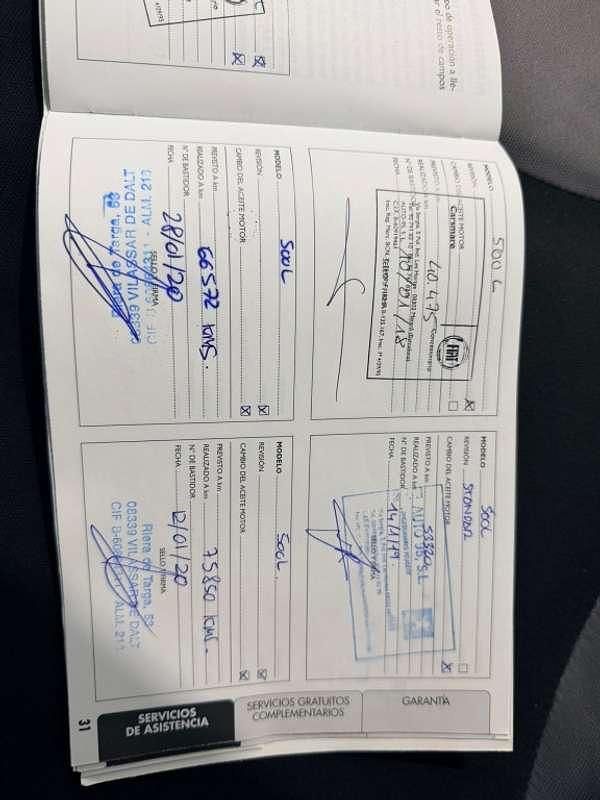 po de operación a lle-
ar el resto de campos
MODELO 500 L
REVISIÓN
CAMBIO DEL ACEITE MOTOR
PREVISTO A km
REALIZADO A km 40.475
Nº DE BASTIDOR
FECHA 10/01/18
Carsmare
Concesionario
FIAT
MODELO 500L
REVISIÓN STANDAR
CAMBIO DEL ACEITE MOTOR
PREVISTO A km
REALIZADO A km 53320
Nº DE BASTIDOR
FECHA 14/1/19.
SELLO Y FIRMA
MODELO 500L
REVISIÓN
CAMBIO DEL ACEITE MOTOR
PREVISTO A km
REALIZADO A km 66572 KMS.
Nº DE BASTIDOR
FECHA 28/01/20
SELLO Y FIRMA
Riera de Targa, 53
08339 VILASSAR DE DALT
MODELO 500L.
REVISIÓN
CAMBIO DEL ACEITE MOTOR
PREVISTO A km
REALIZADO A km 75850 KMS.
Nº DE BASTIDOR
FECHA 12/01/20
SELLO Y FIRMA
Riera de Targa, 53
08339 VILASSAR DE DALT
GARANTÍA
SERVICIOS GRATUITOS
COMPLEMENTARIOS
SERVICIOS
DE ASISTENCIA
31